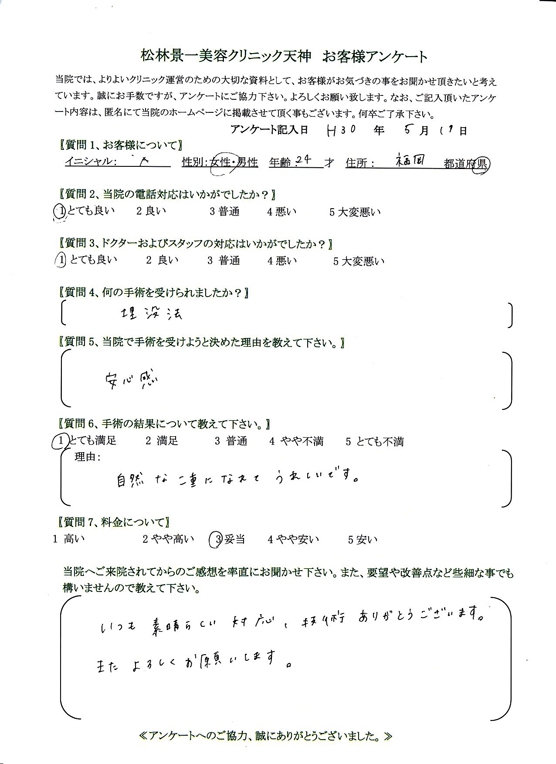 松林景一美容クリニック天神　お客様アンケート
当院では、よりよいクリニック運営のための大切な資料として、お客様がお気づきの事をお聞かせ頂きたいと考え
ています。誠にお手数ですが、アンケートにご協力下さい。よろしくお願い致します。なお、ご記入頂いたアンケ
ート内容は、匿名にて当院のホームページに掲載させて頂く事もございます。何卒ご了承下さい。
アンケート記入日 H30 年 5 月 19 日
〖質問 1、お客様について〗
イニシャル: 性別:女性・男性 年齢 24 才 住所: 福岡 都道府県
〖質問 2、当院の電話対応はいかがでしたか？〗
1とても良い 2 良い 3 普通 4 悪い 5 大変悪い
〖質問 3、ドクターおよびスタッフの対応はいかがでしたか？〗
1 とても良い 2 良い 3 普通 4 悪い 5 大変悪い
〖質問 4、何の手術を受けられましたか？〗
埋没法
〖質問 5、当院で手術を受けようと決めた理由を教えて下さい。〗
安心感
〖質問 6、手術の結果について教えて下さい。〗
1とても満足 2 満足 3 普通 4 やや不満 5 とても不満
理由:
自然な二重になれてうれしいです。
〖質問 7、料金について〗
1 高い 2 やや高い 3 妥当 4 やや安い 5 安い
当院へご来院されてからのご感想を率直にお聞かせ下さい。また、要望や改善点など些細な事でも
構いませんので教えて下さい。
いつも素晴らしい対応、技術ありがとうございます。
またよろしくお願いします。
≪アンケートへのご協力、誠にありがとうございました。≫